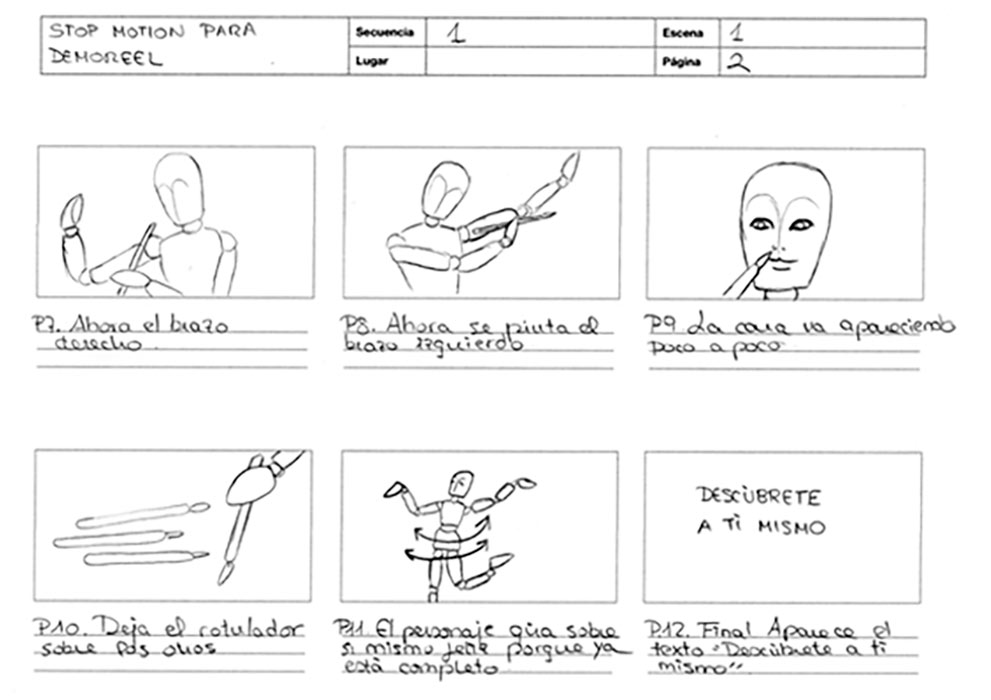 STOP MOTION PARA
DEMOREEL
Secuencia 1
Lugar
Escena 1
Página 2
P7. Ahora el brazo
derecho.
P8. Ahora se pinta el
brazo izquierdo
P9. La cara va apareciendo
poco a poco
DESCÚBRETE
A TI MISMO
P10. Deja el rotulador
sobre los otros
P11. El personaje gira sobre
si mismo feliz porque ya
está completo
P12. Final Aparece el
texto "Descúbrete a ti
mismo"